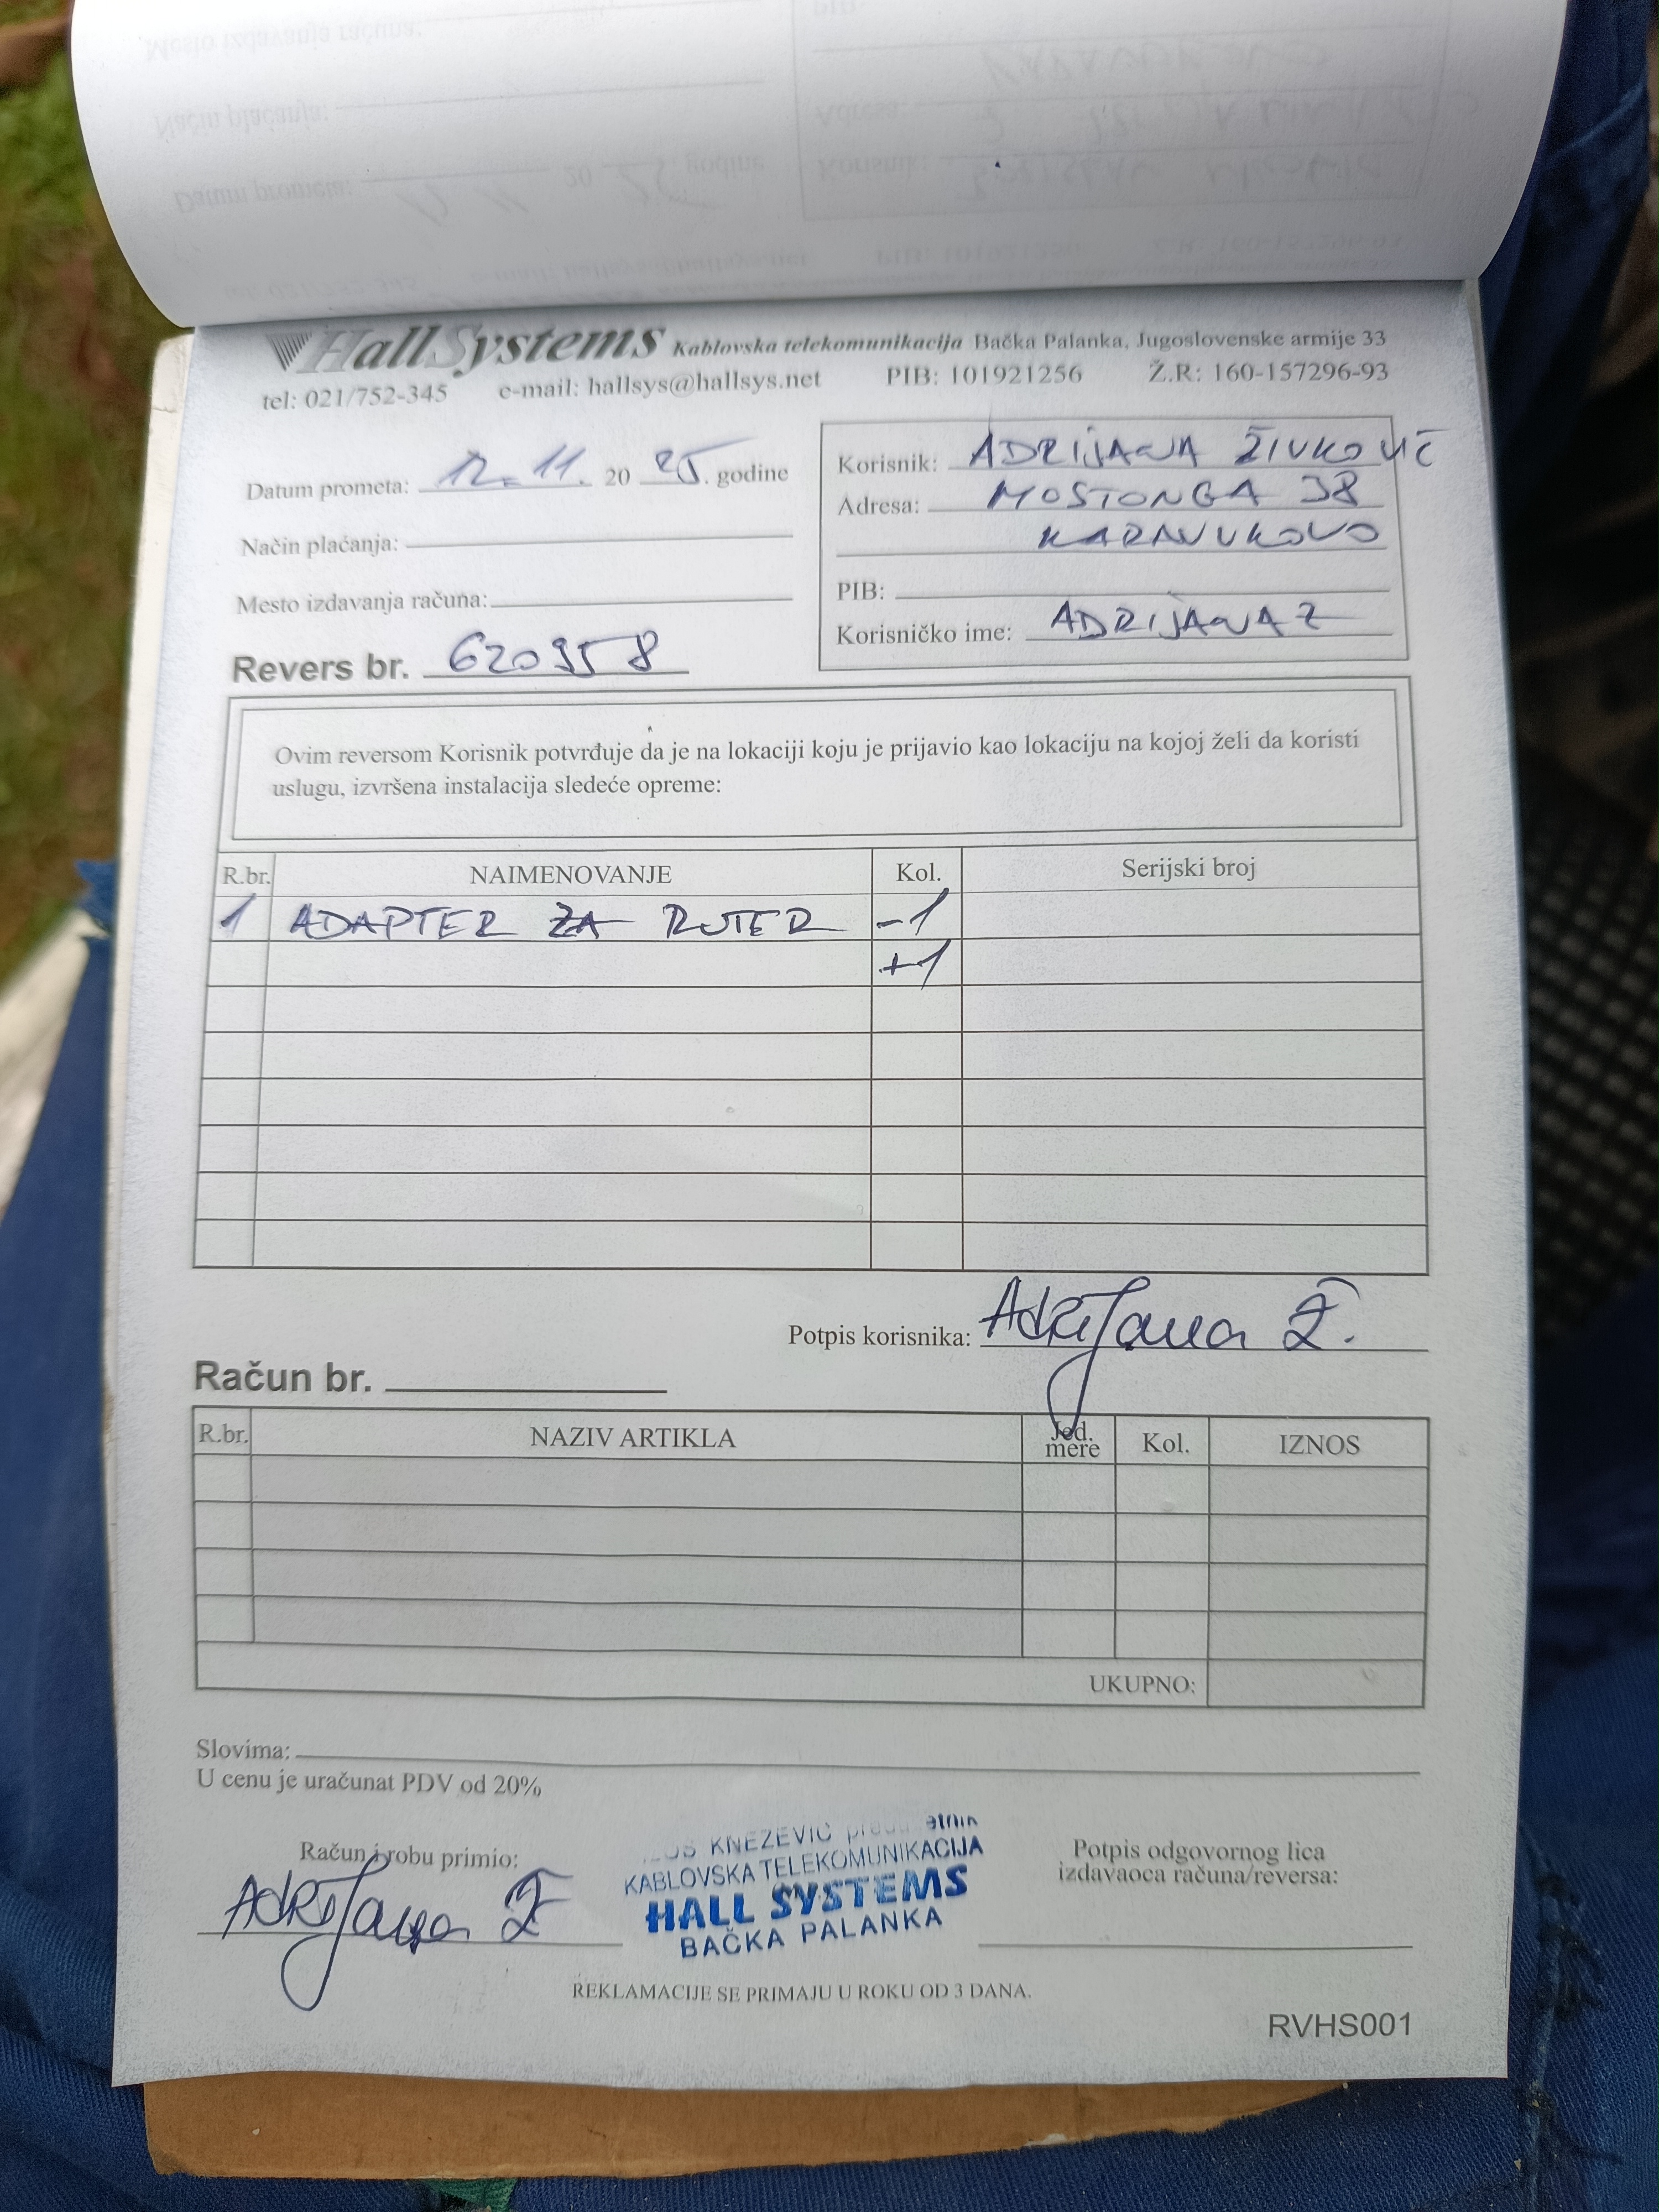 Hall Systems Kablovska telekomunikacija Bačka Palanka, Jugoslovenske armije 33
tel: 021/752-345 e-mail: hallsys@hallsys.net PIB: 101921256 Ž.R: 160-157296-93
Datum prometa: 12. 11. 20 25. godine
Način plaćanja:
Mesto izdavanja računa:
Revers br. 620958
Korisnik: ADRIJANA ŽIVKOVIĆ
Adresa: MOSTONGA 38
KARAVUKOVO
PIB:
Korisničko ime: ADRIJANAZ
Ovim reversom Korisnik potvrđuje da je na lokaciji koju je prijavio kao lokaciju na kojoj želi da koristi
uslugu, izvršena instalacija sledeće opreme:
R.br. NAIMENOVANJE Kol. Serijski broj
1 ADAPTER ZA RUTER -1
+1
Potpis korisnika: Adrijana Ž.
Račun br.
R.br. NAZIV ARTIKLA Jed. mere Kol. IZNOS
UKUPNO:
Slovima:
U cenu je uračunat PDV od 20%
Račun i robu primio:
Adrijana Ž
KNEZEVIC
KABLOVSKA TELEKOMUNIKACIJA
HALL SYSTEMS
BAČKA PALANKA
Potpis odgovornog lica
izdavaoca računa/reversa:
REKLAMACIJE SE PRIMAJU U ROKU OD 3 DANA.
RVHS001